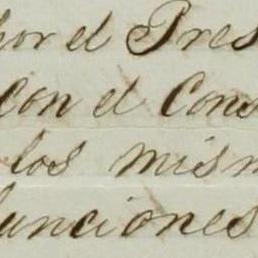 por el Pres
con el Cons
los mism
funciones